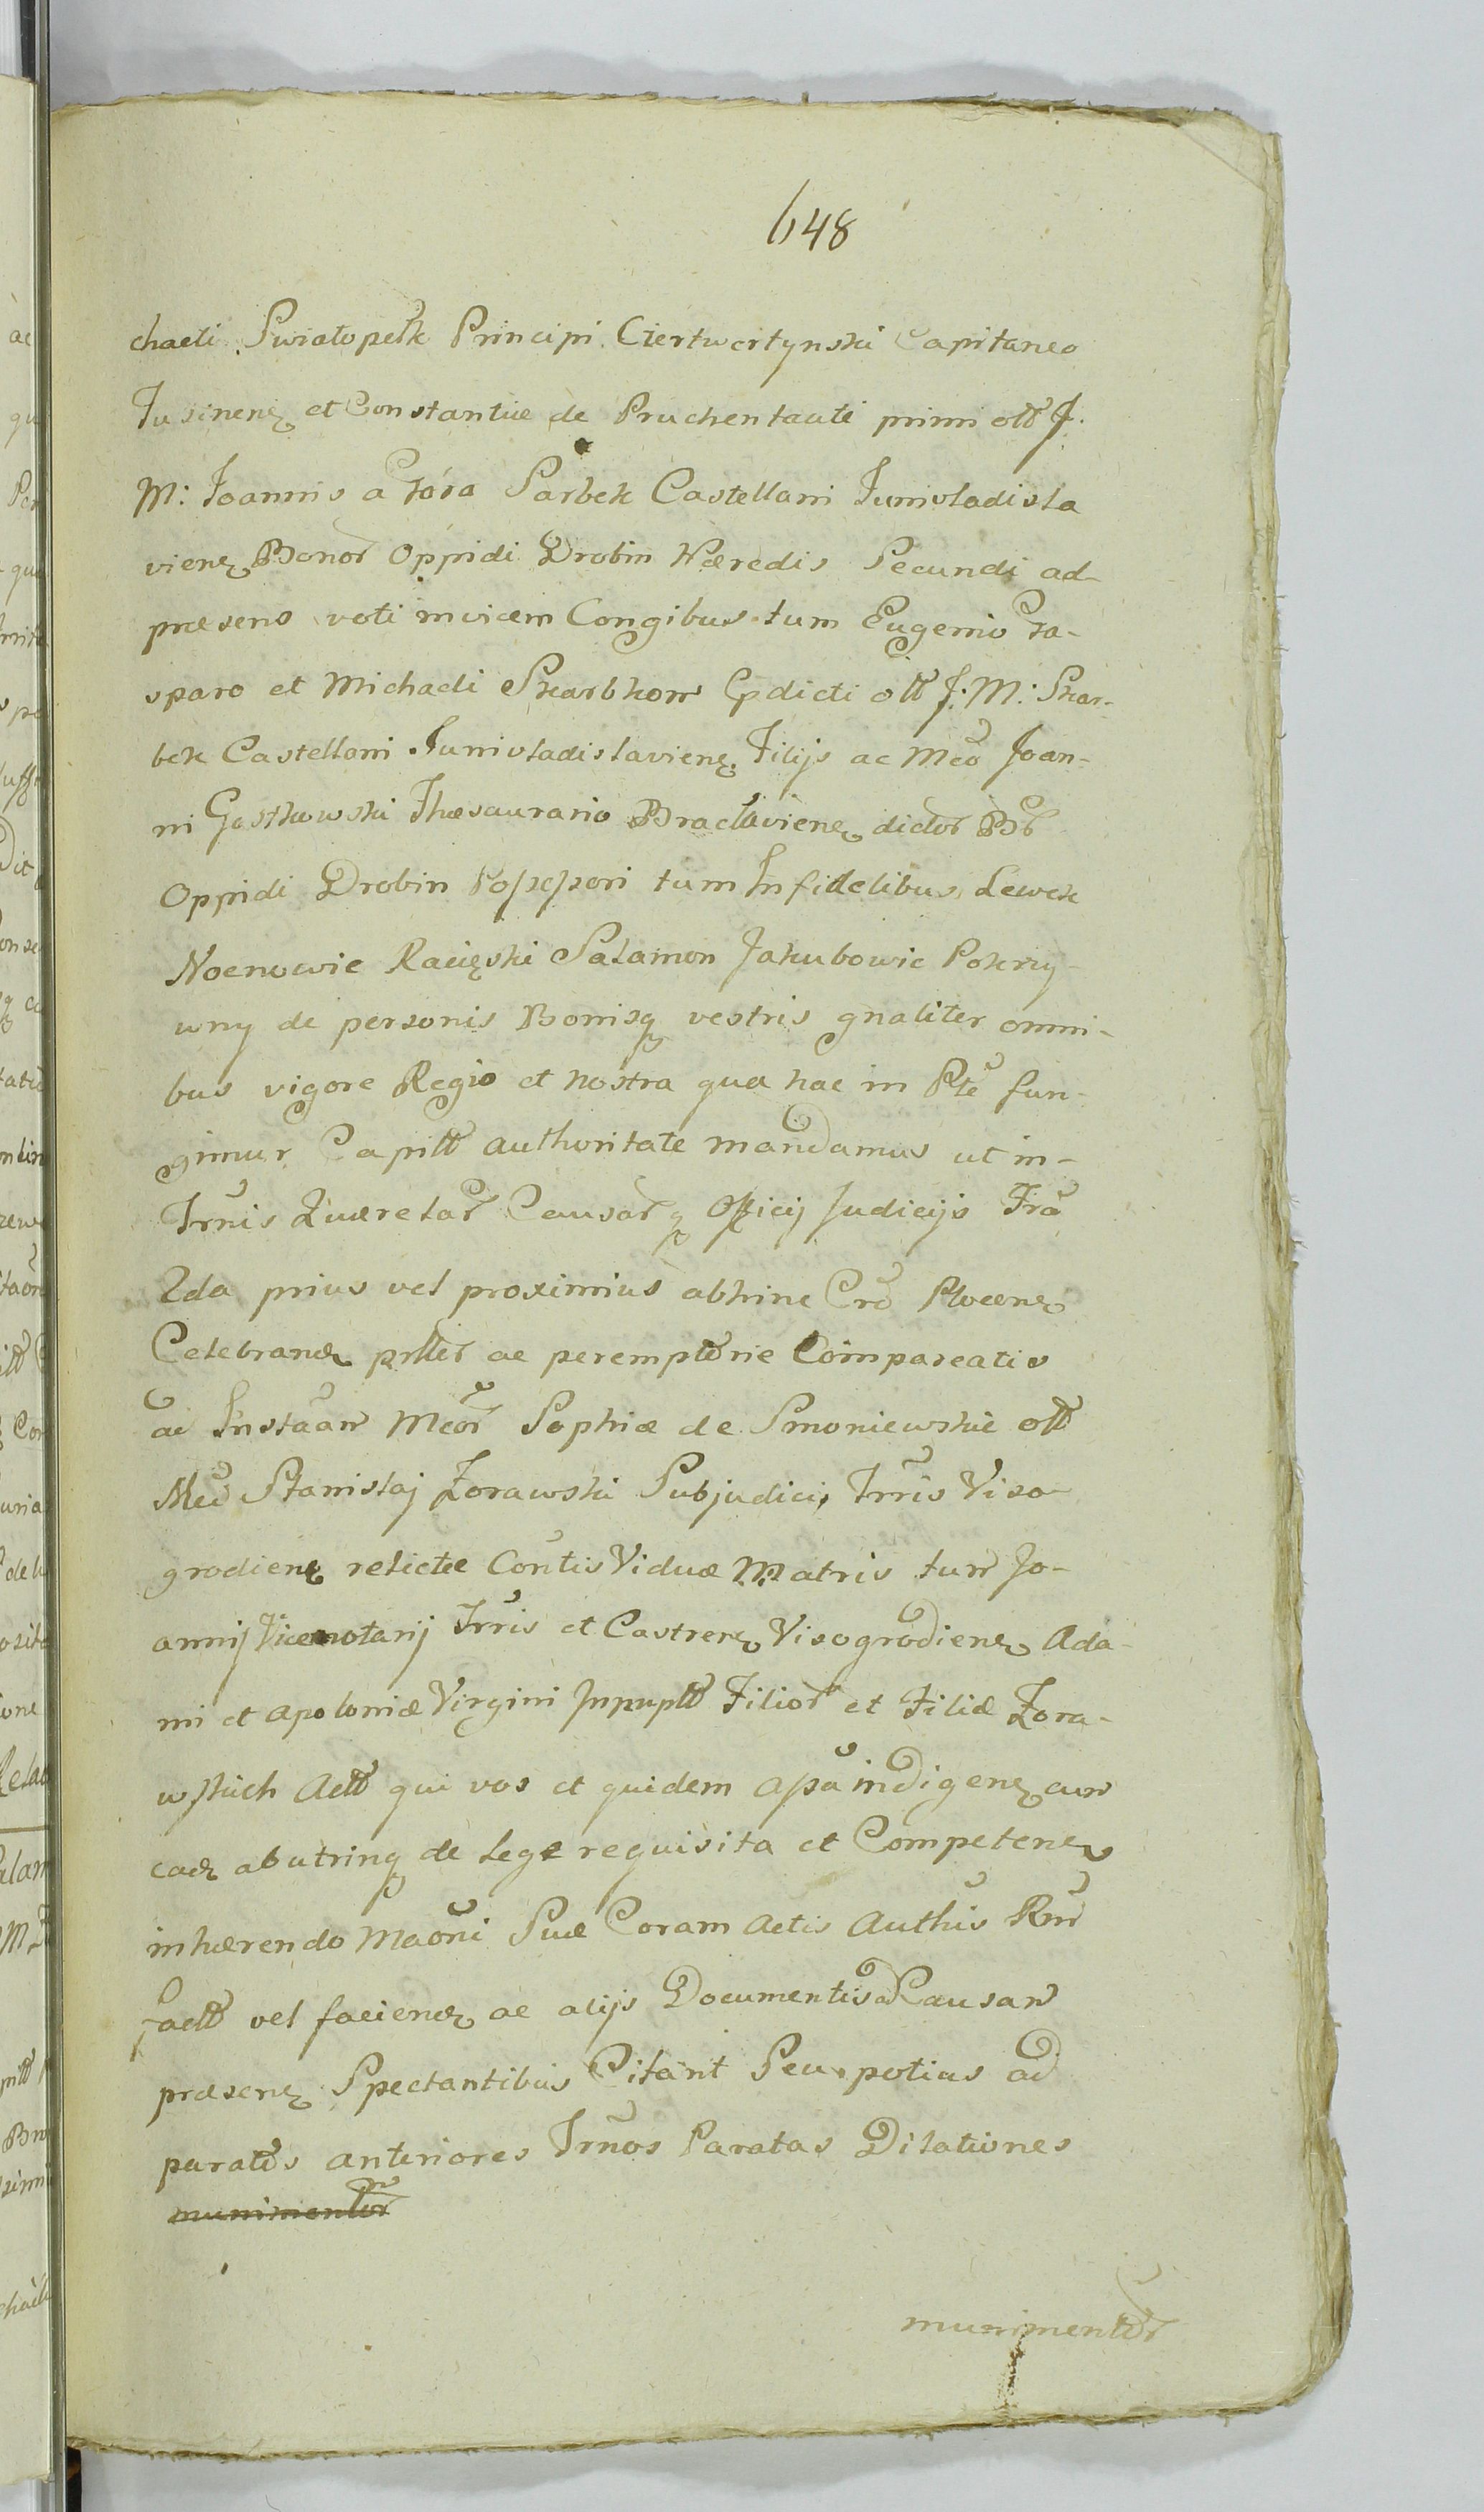 648
chaeli Swiatopełk Principi Czertwertynski Capitaneo
et Constantiæ de primi olt J.
M: Joannis a Góra Sarbek Castellani Juniwladisla
vienȝ Bonor Oppidi Drobin Hæredis Secundi ad-
præsens voti invicem Congibus tum Eugenio Ga-
sparo et Michaeli Skarbkom dicti olt J: M: Skar-
bek Castellani Juniwladislavienȝ Filijs ac Mco Joan-
ni Gostkowski Thæsaurario Braclavienȝ dictor
Oppidi Drobin Possessori tum Infidelibus Lewek
Raciązki Salamon Jakubowic Pokrzy-
wny de personis Bonisq vestris gnaliter omni-
bus vigore Regio et nostra qua hac in Pte fun-
gimur Capitt authoritate mandamus ut in-
Trmis Quæretar Causarq Officij Judicijs Fra
2da prius vel proximius abhinc Cro Plocenȝ
Celebranȝ ac peremptorie Compareatis
ad Instaan Mcor Sophiæ de Smoniewskie olt
Mci Stanislaj Zorawski Subjudicis Trris Viso
grodienȝ relictæ Contis Viduæ Matris tum Jo-
annij Vicenotarij Trris et Castrenȝ Visogrodienȝ Ada-
mi et Apoloniæ Virgini Filior et Filiæ Zora-
wskich qui vos et quidem indigenȝ cum
eadȝ ab utrinq de Lege requisita et Competenȝ
inhærendo Maoni Suæ Coram Actis Authis
factt vel facienȝ ac alijs Documentis ad Causam
præsenȝ Spectantibus Citant Seu potius ad
paratos anteriores Trmos Paratas Dilationes
munimentor
munimentor